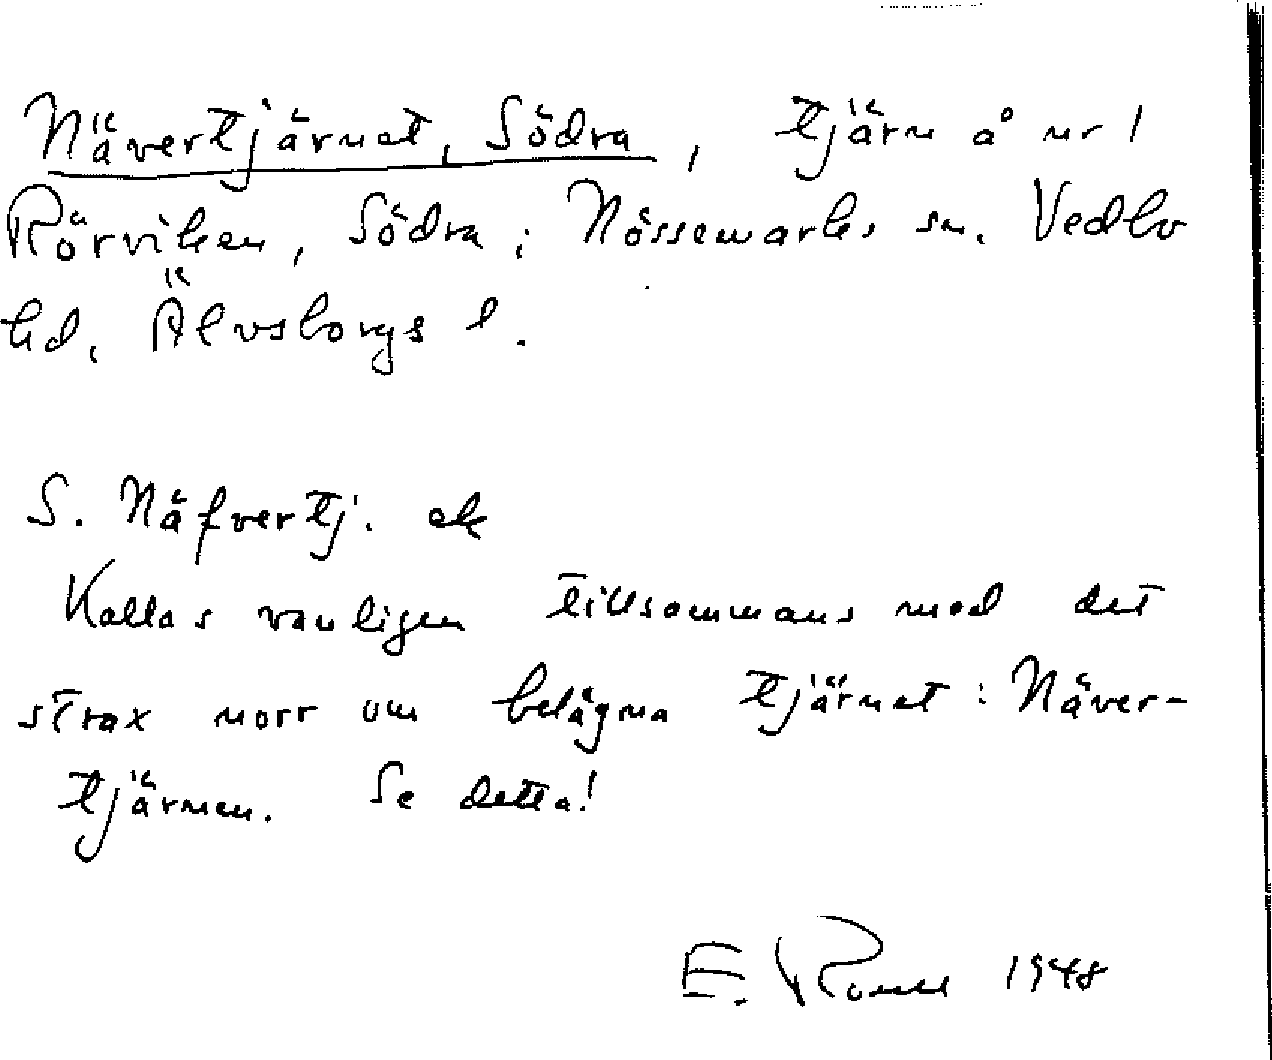 Nävertjärnet, Södra, tjärn å nr 1
Rörviken, Södra; Nössemarks sn. Vedbo
hd. Älvsborgs l.
S. Näfvertj. ek
Kallas vanligen tillsammans med det
strax norr om belägna tjärnet: Näver-
tjärnen. Se detta!
E. 1948